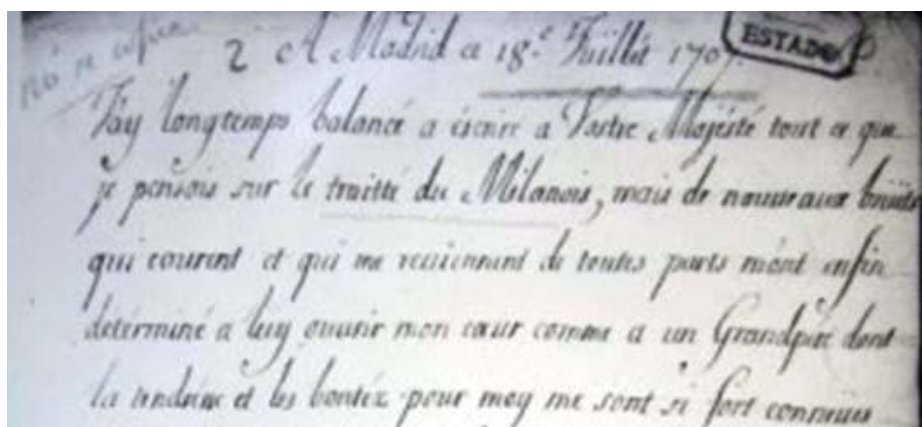 2 A Madrid ce 18.e Juillet 1707.
ESTADO
J'ay longtemps balancé a écrire a Vostre Majesté tout ce que
je pensois sur le traitté du Milanois, mais de nouveaux bruits
qui courent et qui me reviennent de toutes parts m'ont enfin
déterminé a luy ouurir mon cœur comme a un Grandpere dont
la tendresse et les bontéz pour moy me sont si fort connuües